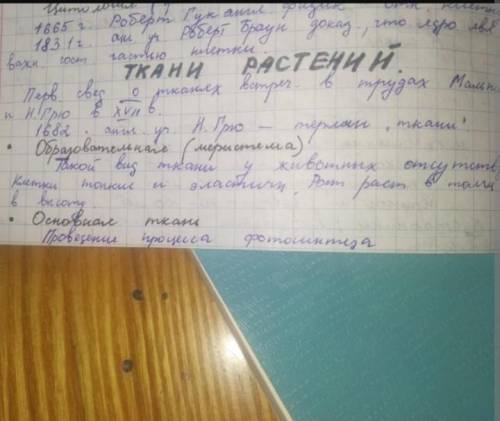 Цитология
1665 г. Роберт Гук англ. физик отк. клетк
1831 г. анг. уч. Роберт Браун доказ., что ядро явл
важн. сост. частью клетки.
ТКАНИ РАСТЕНИЙ.
Перв. свед. о тканях встреч. в трудах Мальп
и Н. Грю в XVII в.
1682 г. англ. уч. Н. Грю – термин „ткани"
• Образовательная (меристема)
Такой вид ткани у животных отсутств
Клетки тонкие и эластичн. Рост раст. в толщ
в высоту
• Основная ткань
Проведение процесса фотосинтеза